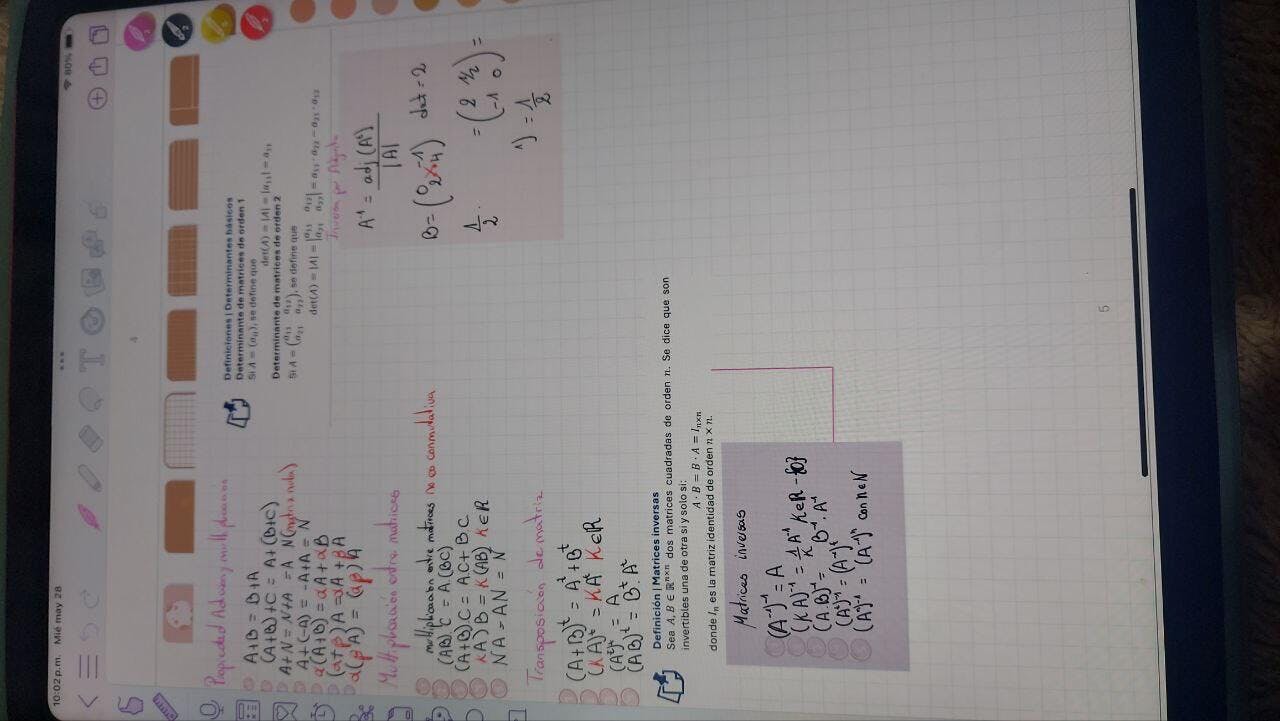 10:02 p.m. Mié may 28
80%
4
Propiedad Adicion y multiplicacion
A+B = B+A
(A+B)+C = A+(B+C)
A+N = N+A = A N(matriz nula)
A+(-A) = -A+A = N
α(A+B) = αA+αB
(α+β)A = αA+βA
α(βA) = (αβ)A
Multiplicación entre matrices
multiplicación entre matrices no es conmutativa
(AB)C = A(BC)
(A+B)C = AC+BC
(KA)B = K(AB) K∈ℝ
NA = AN = N
Transposición de matriz
(A+B)ᵗ = Aᵗ+Bᵗ
(KA)ᵗ = KAᵗ K∈ℝ
(Aᵗ)ᵗ = A
(AB)ᵗ = Bᵗ.Aᵗ
Definiciones | Determinantes básicos
Determinante de matrices de orden 1
Si A = (a₁₁), se define que
det(A) = |A| = |a₁₁| = a₁₁
Determinante de matrices de orden 2
Si A = (a₁₁ a₁₂
a₂₁ a₂₂), se define que
det(A) = |A| = |a₁₁ a₁₂
a₂₁ a₂₂| = a₁₁ · a₂₂ − a₂₁ · a₁₂
Inversa por Adjunta
A⁻¹ = adj(Aᵗ)
|A|
B = (0 -1
2 4) det = 2
1/2 · = (2 1/2
-1 0) =
1) = 1/2
Definición | Matrices inversas
Sea A, B ∈ ℝⁿˣⁿ dos matrices cuadradas de orden n. Se dice que son
invertibles una de otra si y solo si:
A · B = B · A = Iₙₓₙ
donde Iₙ es la matriz identidad de orden n × n.
Matrices inversas
(A⁻¹)⁻¹ = A
(KA)⁻¹ = 1/K A⁻¹ K∈ℝ-{0}
(A.B)⁻¹ = B⁻¹.A⁻¹
(Aᵗ)⁻¹ = (A⁻¹)ᵗ
(Aⁿ)⁻¹ = (A⁻¹)ⁿ con n∈N
5